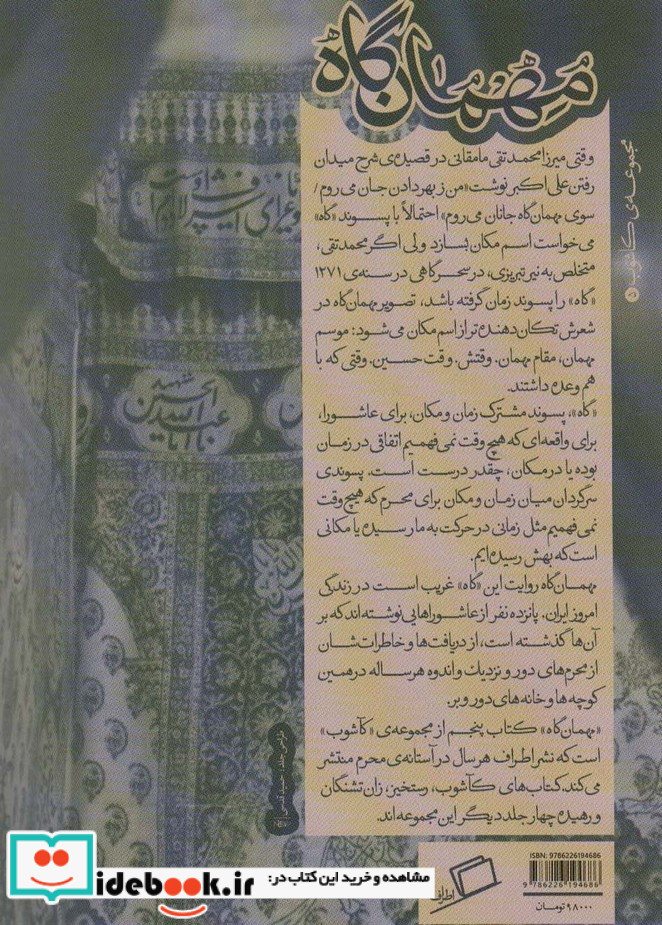 مهمان‌گاه
مجموعه‌ی کآشوب ۵
وقتی میرزا محمد تقی مامقانی در قصیده‌ی شرح میدان
رفتن علی اکبر نوشت «من ز بهر دادن جان می‌روم /
سوی مهمان‌گاه جانان می‌روم» احتمالاً با پسوند «گاه»
می‌خواست اسم مکان بسازد ولی اگر محمد تقی،
متخلص به نیر تبریزی، در سحرگاهی در سنه‌ی ۱۲۷۱
«گاه» را پسوند زمان گرفته باشد، تصویر مهمان‌گاه در
شعرش تکان‌دهنده‌تر از اسم مکان می‌شود: موسم
مهمان، مقام مهمان. وقتش. وقت حسین. وقتی که با
هم وعده داشتند.
«گاه»، پسوند مشترک زمان و مکان، برای عاشورا،
برای واقعه‌ای که هیچ وقت نمی‌فهمیم اتفاقی در زمان
بوده یا در مکان، چقدر درست است. پسوندی
سرگردان میان زمان و مکان برای محرم که هیچ وقت
نمی‌فهمیم مثل زمانی در حرکت به ما رسیده یا مکانی
است که بهش رسیده‌ایم.
مهمان‌گاه روایت این «گاه» غریب است در زندگی
امروز ایران. پانزده نفر از عاشوراهایی نوشته‌اند که بر
آن‌ها گذشته است، از دریافت‌ها و خاطرات‌شان
از محرم‌های دور و نزدیک و اندوه هر ساله در همین
کوچه‌ها و خانه‌های دور و بر.
«مهمان‌گاه» کتاب پنجم از مجموعه‌ی «کآشوب»
است که نشر اطراف هر سال در آستانه‌ی محرم منتشر
می‌کند. کتاب‌های کآشوب، رستخیز، زان تشنگان
و رهیده چهار جلد دیگر این مجموعه‌اند.
عبدالله الحسین
شهید
طراحی جلد: حمید قدسی
ISBN: 9786226194686
9 786226 194686
۹۸۰۰۰ تومان
اطراف
مشاهده و خرید این کتاب در:
idebook.ir